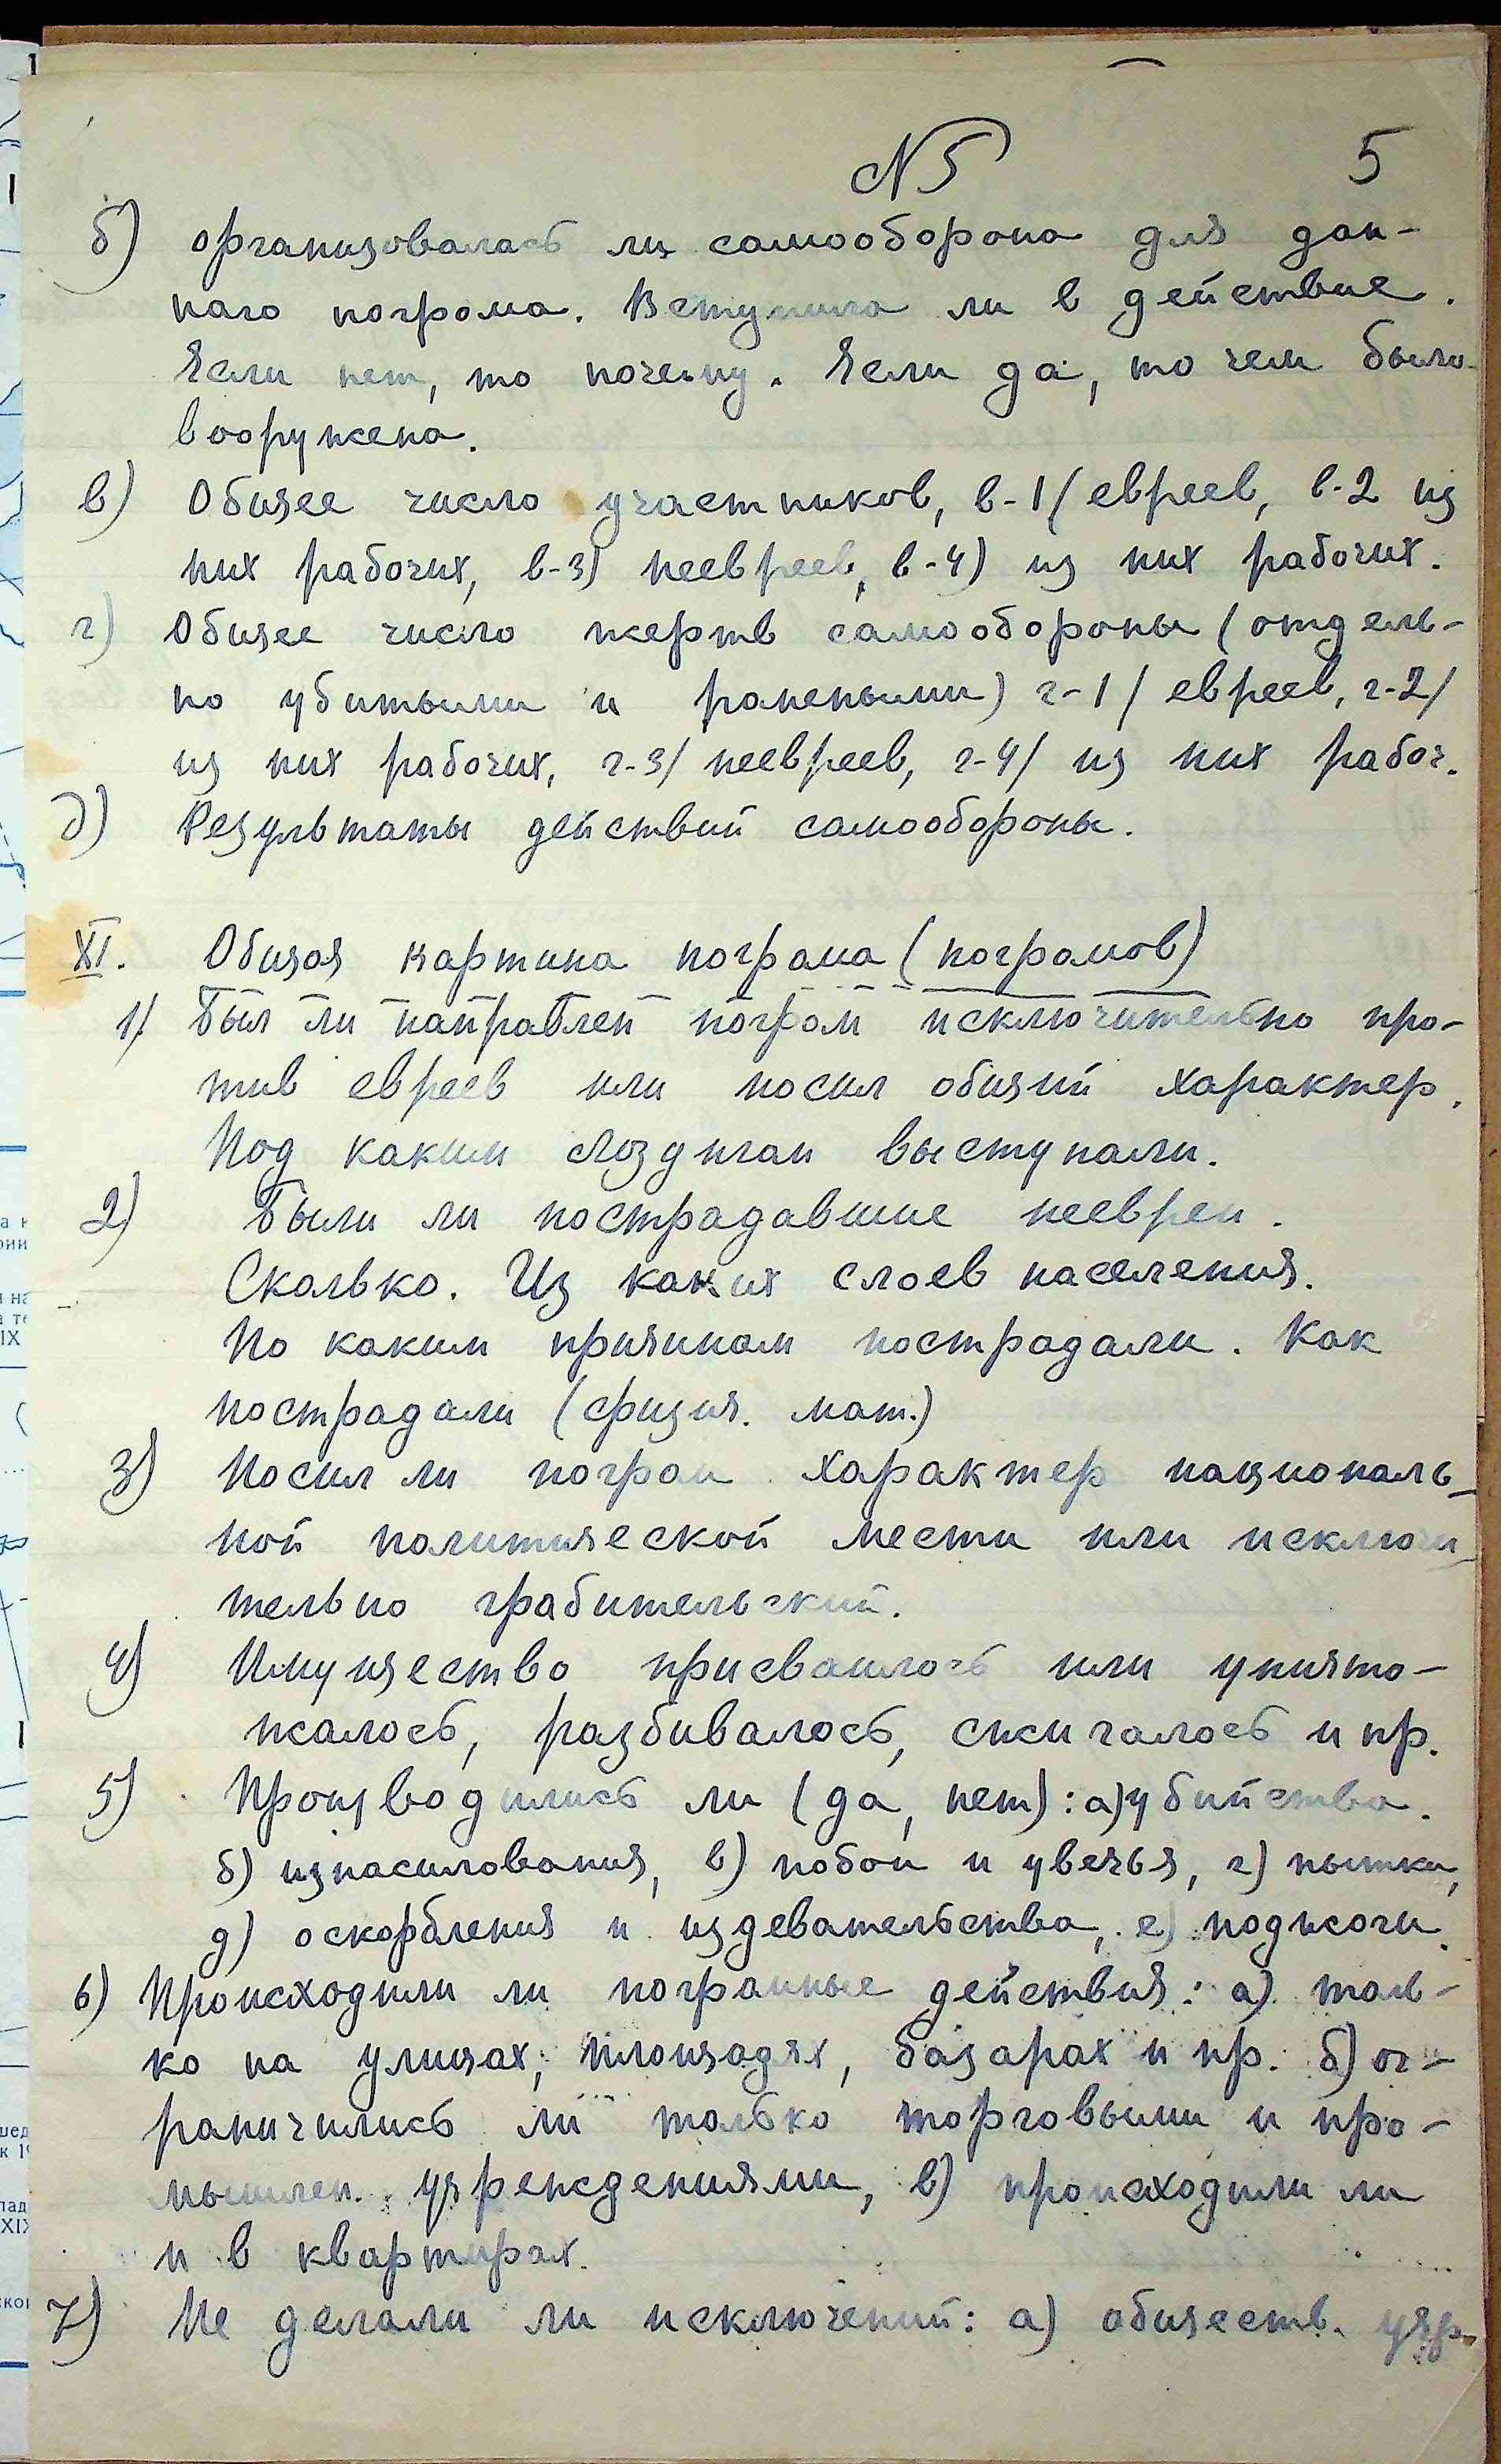 N 5 5
б) организовалась ли самооборона для дан-
ного погрома. Вступила ли в действие.
Если нет, то почему. Если да, то чем была
вооружена.
в) Общее число участников, в-1/ евреев, в-2 из
них рабочих, в-3) неевреев, в-4) из них рабочих.
г) Общее число жертв самообороны (отдель-
но убитыми и ранеными) г-1/ евреев, г-2/
из них рабочих, г-3/ неевреев, г-4/ из них рабоч.
д) Результаты действий самообороны.
XI. Общая картина погрома (погромов)
1/ Был ли направлен погром исключительно про-
тив евреев или носил общий характер.
Под каким лозунгом выступали.
2) Были ли пострадавшие неевреи.
Сколько. Из каких слоев населения.
По каким причинам пострадали. Как
пострадали (физич. мат.)
3) Носил ли погром характер националь-
ной политической мести или исключи-
тельно грабительский.
4) Имущество присваилось или уничто-
жалось, разбивалось, сжигалось и пр.
5) Производились ли (да, нет): а) убийства.
б) изнасилования, в) побои и увечья, г) пытки,
д) оскорбления и издевательства, е) поджоги.
6) Происходили ли погромные действия: а) толь-
ко на улицах, площадях, базарах и пр. б) ог-
раничились ли только торговыми и про-
мышлен. учреждениями, в) происходили ли
и в квартирах.
7) Не делали ли исключений: а) обществ. учр.